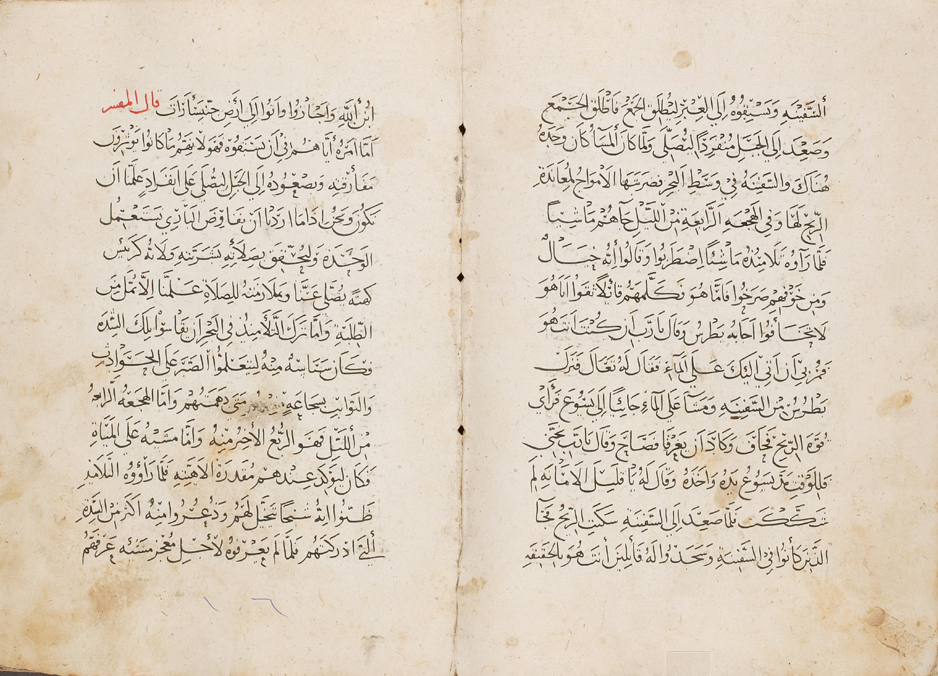 السفينه ويسبقوه إلى العبر ليطلق الجمع فاطلق الجمع
وصعد إلى الجبل منفردًا ليصلى ولما كان المسا كان وحده
هناك والسفينه في وسط البحر تضربها الامواج لمعاندة
الريح لها وفي الهجعه الرابعة من الليل جاهم ماشيًا
فلما راوه تلاميذه ماشيًا اضطربوا وقالوا انه خيال
ومن خوفهم صرخوا فاما هو فكلمهم قايلًا ثقوا انا هو
لا تخافوا اجابه بطرس وقال يا رب ان كنت انت هو
فمرني ان اتي اليك على المآء فقال له تعال فنزل
بطرس من السفينه ومشا على المآء جايًا إلى يسوع فراى
قوة الريح فخاف وكاد ان يغرق فصاح وقال يا رب نجني
فللوقت مد يسوع يده واخذه وقال له يا قليل الامانه لم
تشككت فلما صعد إلى السفينه سكنت الريح فجا
الذين كانوا في السفينه وسجدوا له قايلين انت هو بالحقيقه
ابن الله واجتازوا واتوا إلى ارض جنيسارات قال المفسر
اما امره اياهم في ان يسبقوه فهو لانهم ما كانوا يوثرون
مفارقته وبصعوده إلى الجبل ليصلى على انفراد علمنا ان
نكون نحن اذا ما اردنا ان نفاوض الباري نستعمل
الوحدة وليحقق بصلاته بشريته ولانه كرييس
كهنه يصلى عنا وبملازمته للصلاة علمنا الا نمل من
الطلبه واما تركه التلاميذ في البحر ان يقاسوا تلك الشده
فكان سياسه منه ليتعلموا الصبر على الحوادث
والنوايب بشجاعه متى دهمتهم واما الهجعه الرابعه
من الليل فهو الربع الاخير منه واما مشيه على المياه
فكان ليوكد عندهم مقدرة الاهيته فلما راوه التلاميذ
ظنوا انه شبحًا تخيل لهم وذعروا منه اكثر من الشده
التي ادركتهم فلما لم يعرفوه لاجل معجز مشيه عرفهم
١٦